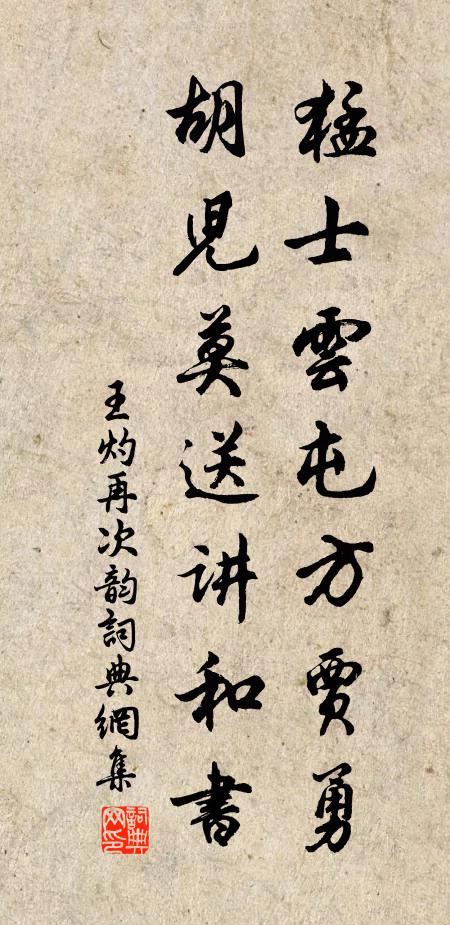 猛士雲屯方賈勇
胡児莫送讲和書
王灼再次韵詞典網集
詞典网印